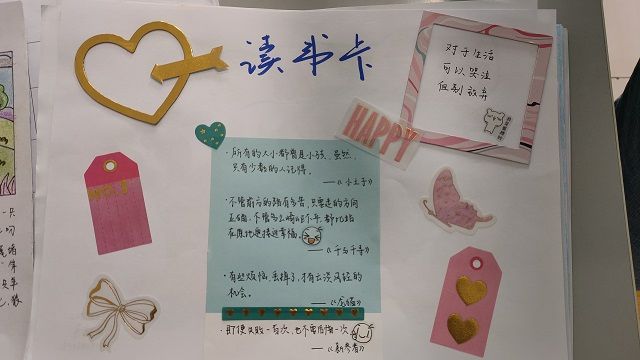 读书卡
对于生活
可以哭泣
但别放弃
HAPPY
·所有的大人都曾是小孩,虽然,
只有少数的人记得。
——《小王子》
·不管前方的路有多苦,只要走的方向
正确,不管多么崎岖不平,都比站
在原地更接近幸福。
——《千与千寻》
·有些烦恼,丢掉了,才有云淡风轻的
机会。
·即使失败一百次,也不要后悔一次